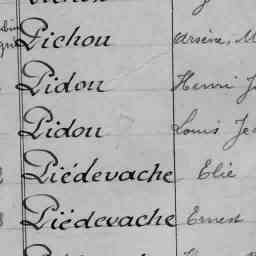 Pichou Arsène, M
Pidou Henri J
Pidou Louis Je
Piédevache Elie
Piédevache Ernest